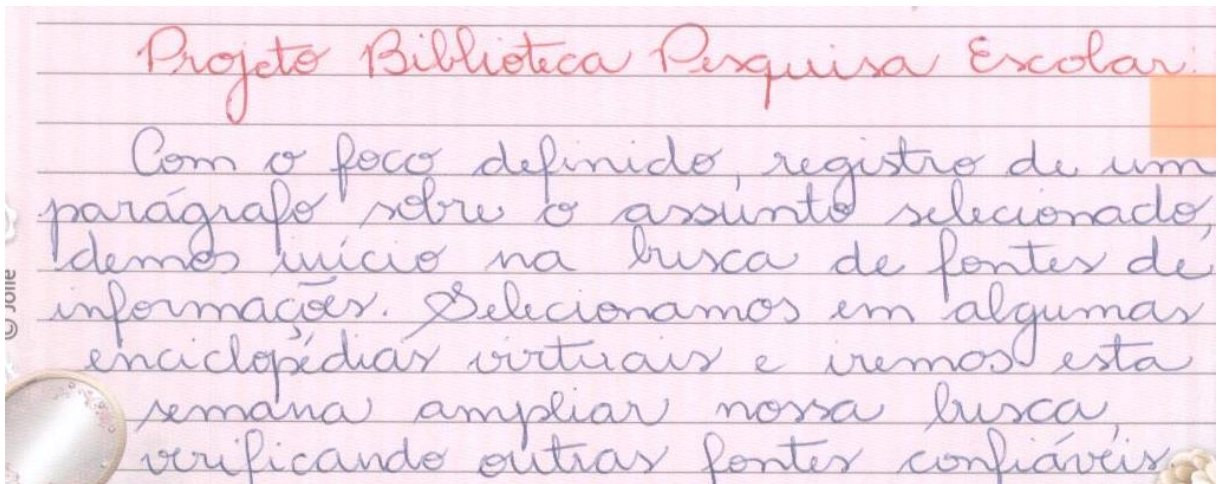 Projeto Biblioteca Pesquisa Escolar:
Com o foco definido, registro de um
parágrafo sobre o assunto selecionado,
demos início na busca de fontes de
informações. Selecionamos em algumas
enciclopédias virtuais e iremos esta
semana ampliar nossa busca,
verificando outras fontes confiáveis
© Jolie